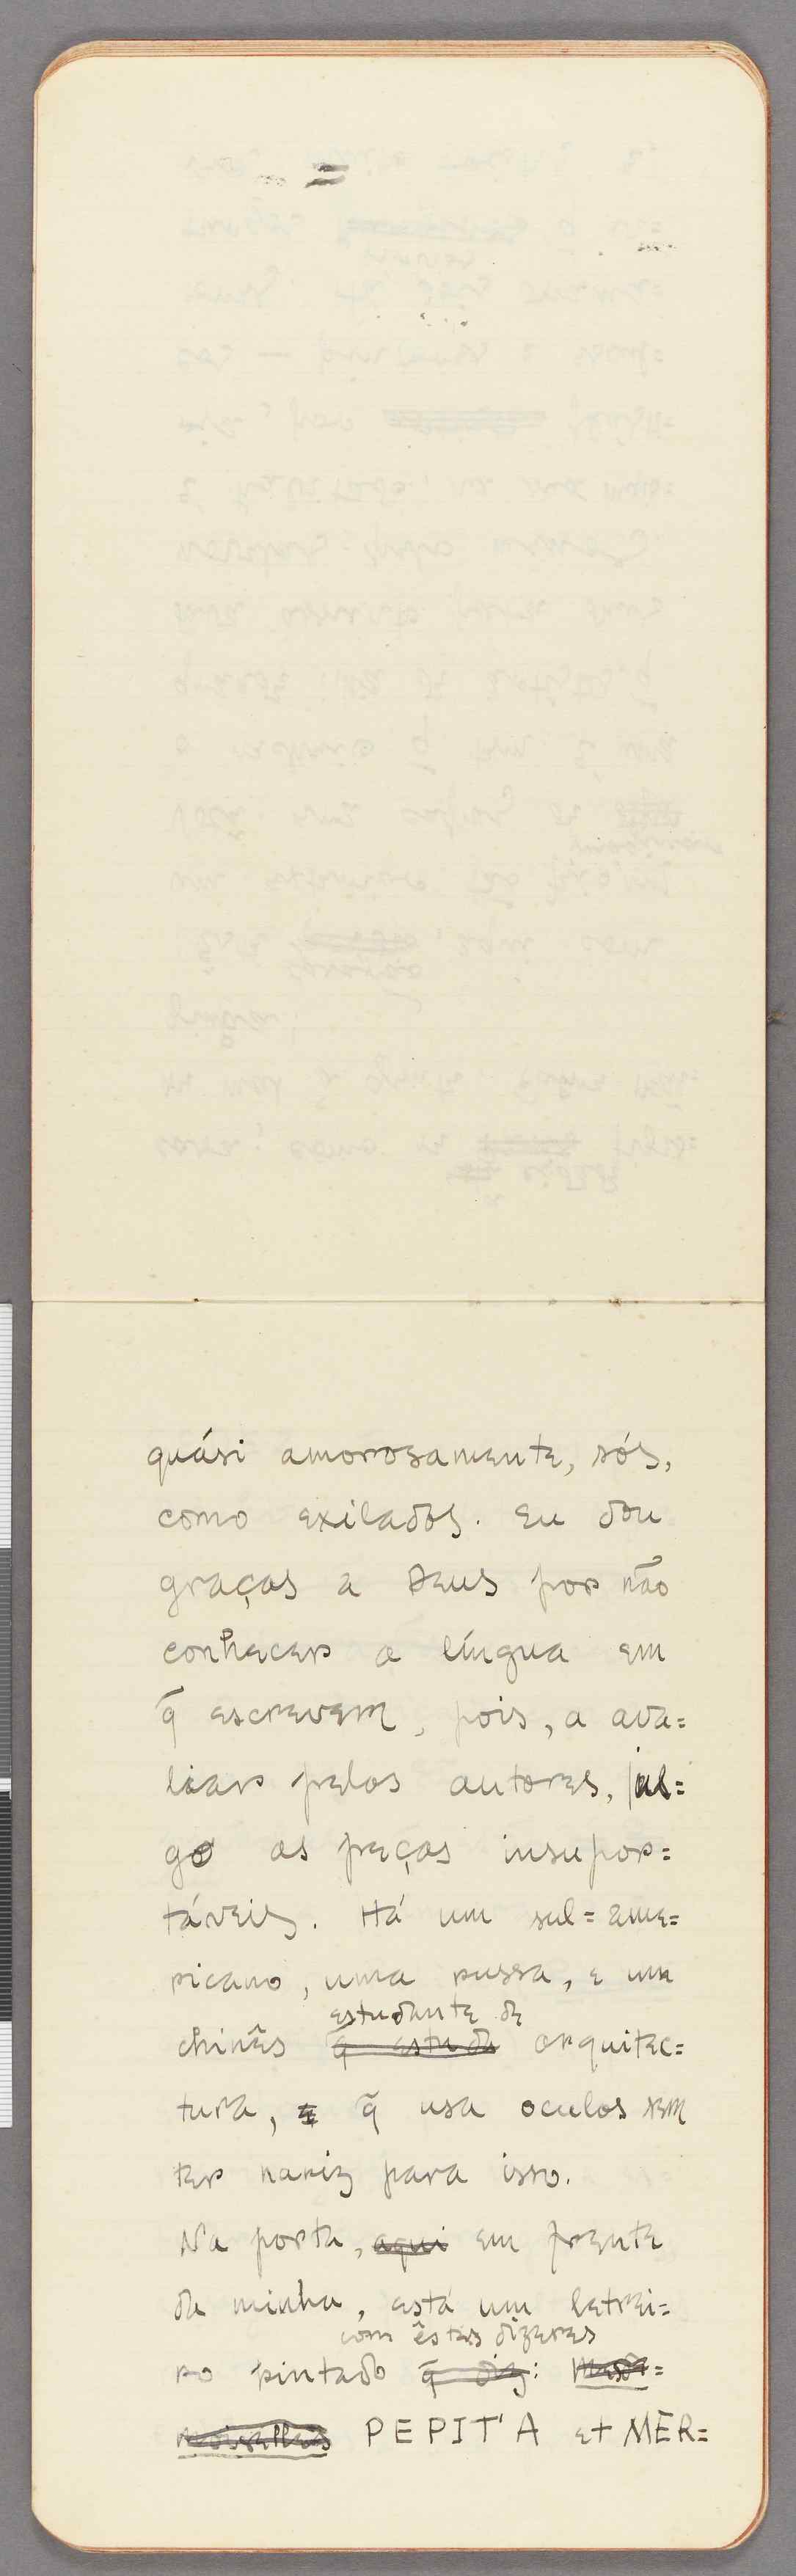 quási amorosamente, sós,
como exilados. Eu dou
graças a Deus por não
conhecer a língua em
q̃ escrevem, pois, a ava=
liar pelos autores, jul=
go as peças insupor=
táveis. Há um sul=ame=
ricano, uma russa, e um
estudante de
chinês q̃ estuda arquitec=
tura, e q̃ usa oculos sem
ter nariz para isso.
Na porta, aqui em frente
da minha, está um letrei=
com êstes dizeres
ro pintado q̃ diz: Made=
moiselles PEPIT'A et MER=